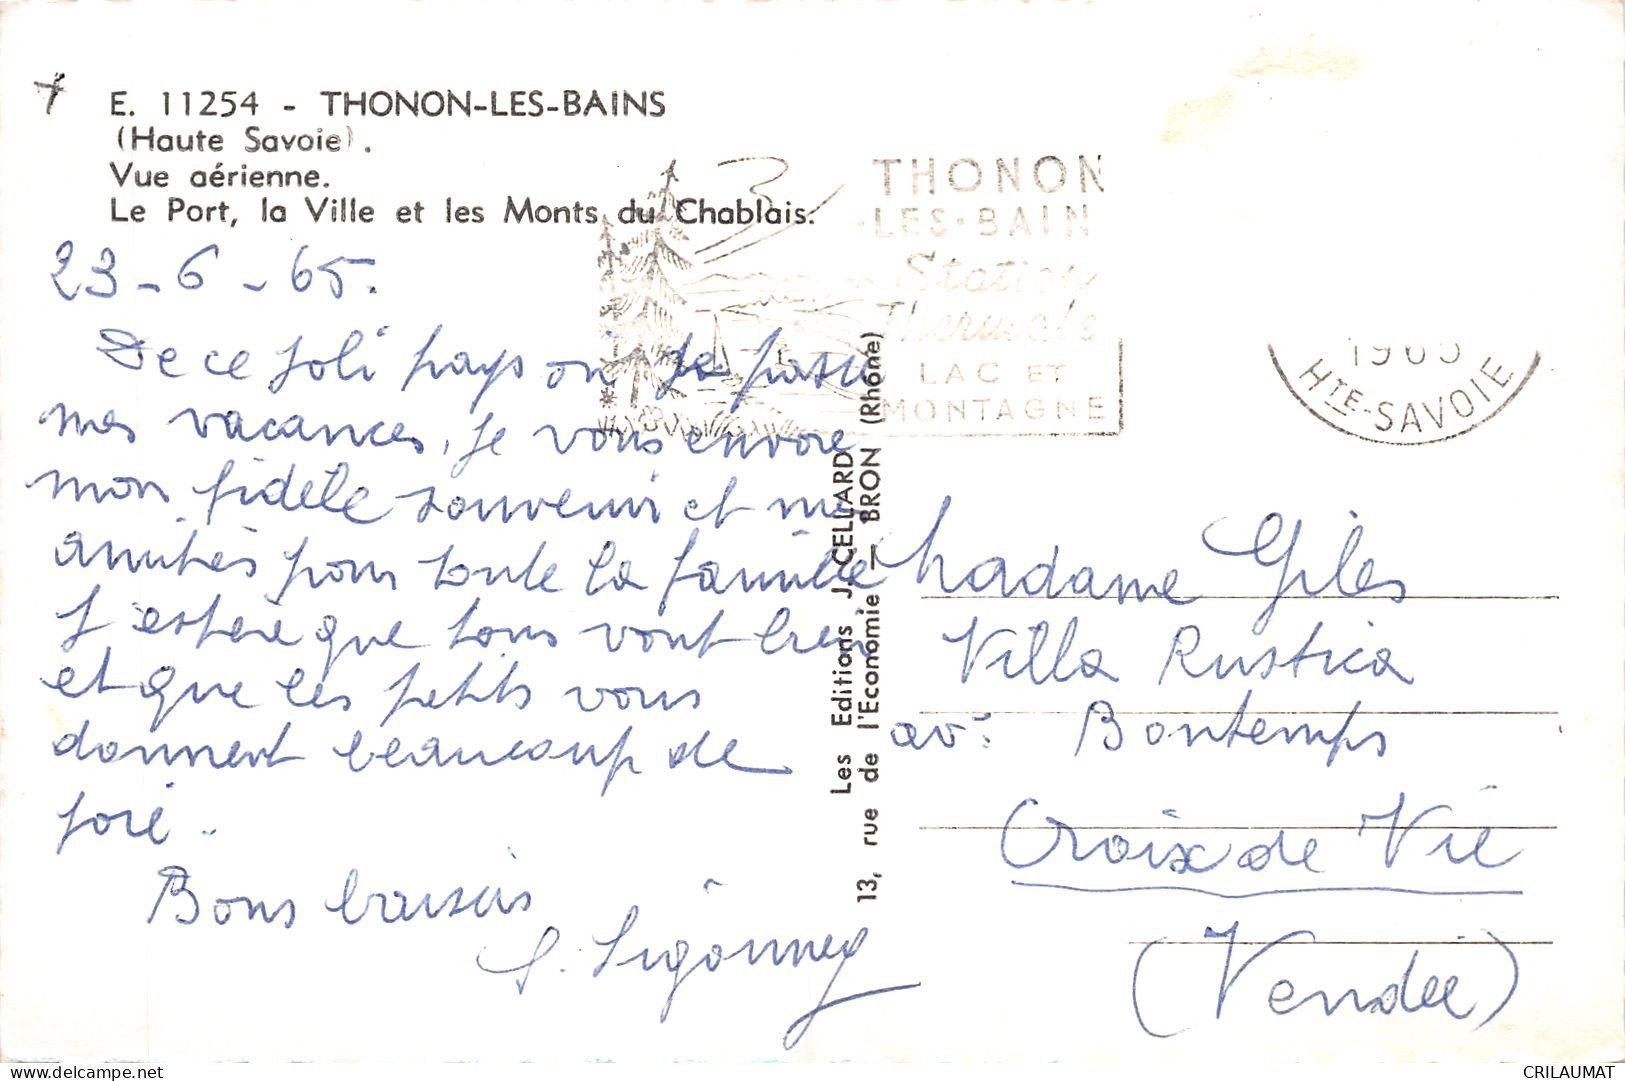 E. 11254 - THONON-LES-BAINS
(Haute Savoie).
Vue aérienne.
Le Port, la Ville et les Monts du Chablais.
THONON
-LES-BAIN
Station
Thermale
LAC ET
MONTAGNE
1965
HTE-SAVOIE
23-6-65.
De ce joli pays où je passe
mes vacances, je vous envoie
mon fidèle souvenir et mes
amitiés pour toute la famille
J'espère que tous vont bien
et que les petits vous
donnent beaucoup de
joie.
Bons baisers
S. Sigonney
Les Editions J. CELLARD
13, rue de l'Economie — BRON (Rhône)
Madame Giles
Villa Rustica
av: Bontemps
Croix de Vie
(Vendée)
CRILAUMAT